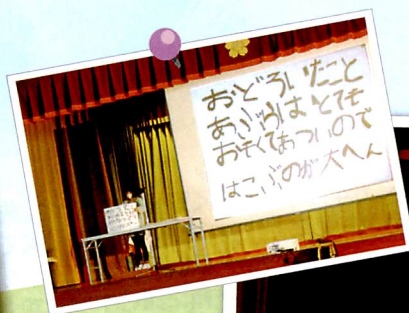 おどろいたこと
あぶらはとても
おそくてあついので
はこぶのが大へん